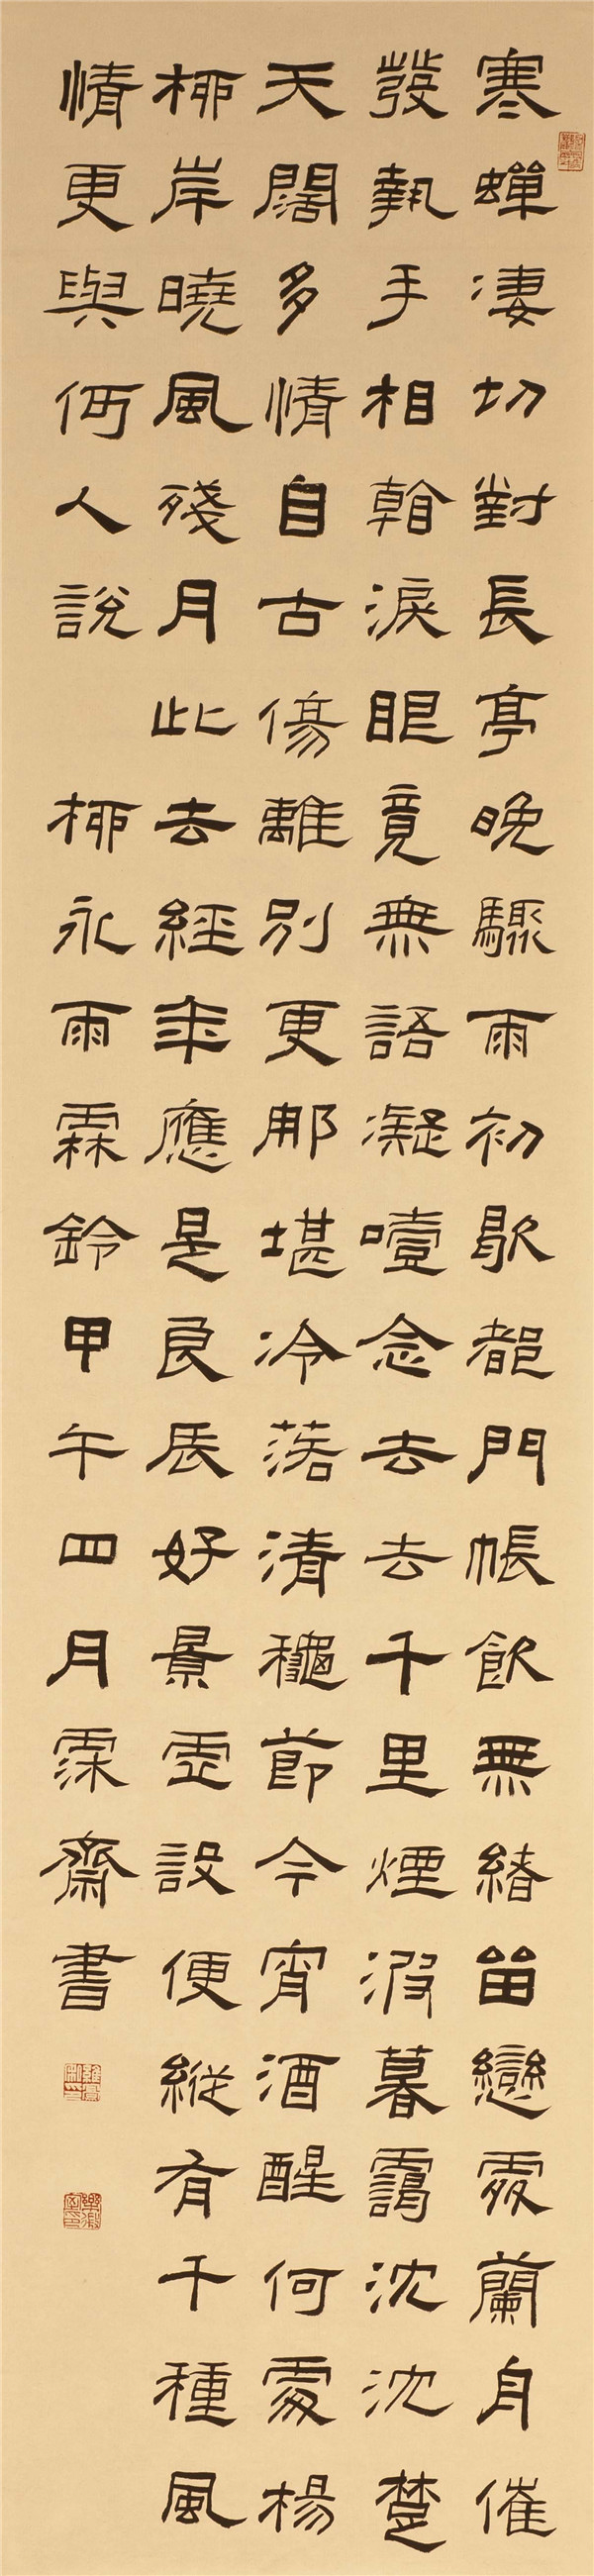 寒蟬凄切對長亭晚驟雨初歇都門帳飲無緒留戀處蘭舟催
發執手相看淚眼竟無語凝噎念去去千里煙波暮靄沈沈楚
天闊多情自古傷離別更那堪冷落清穐節今宵酒醒何處楊
柳岸曉風殘月此去經年應是良辰好景虛設便縱有千種風
情更與何人說 柳永雨霖鈴甲午四月霂齋書